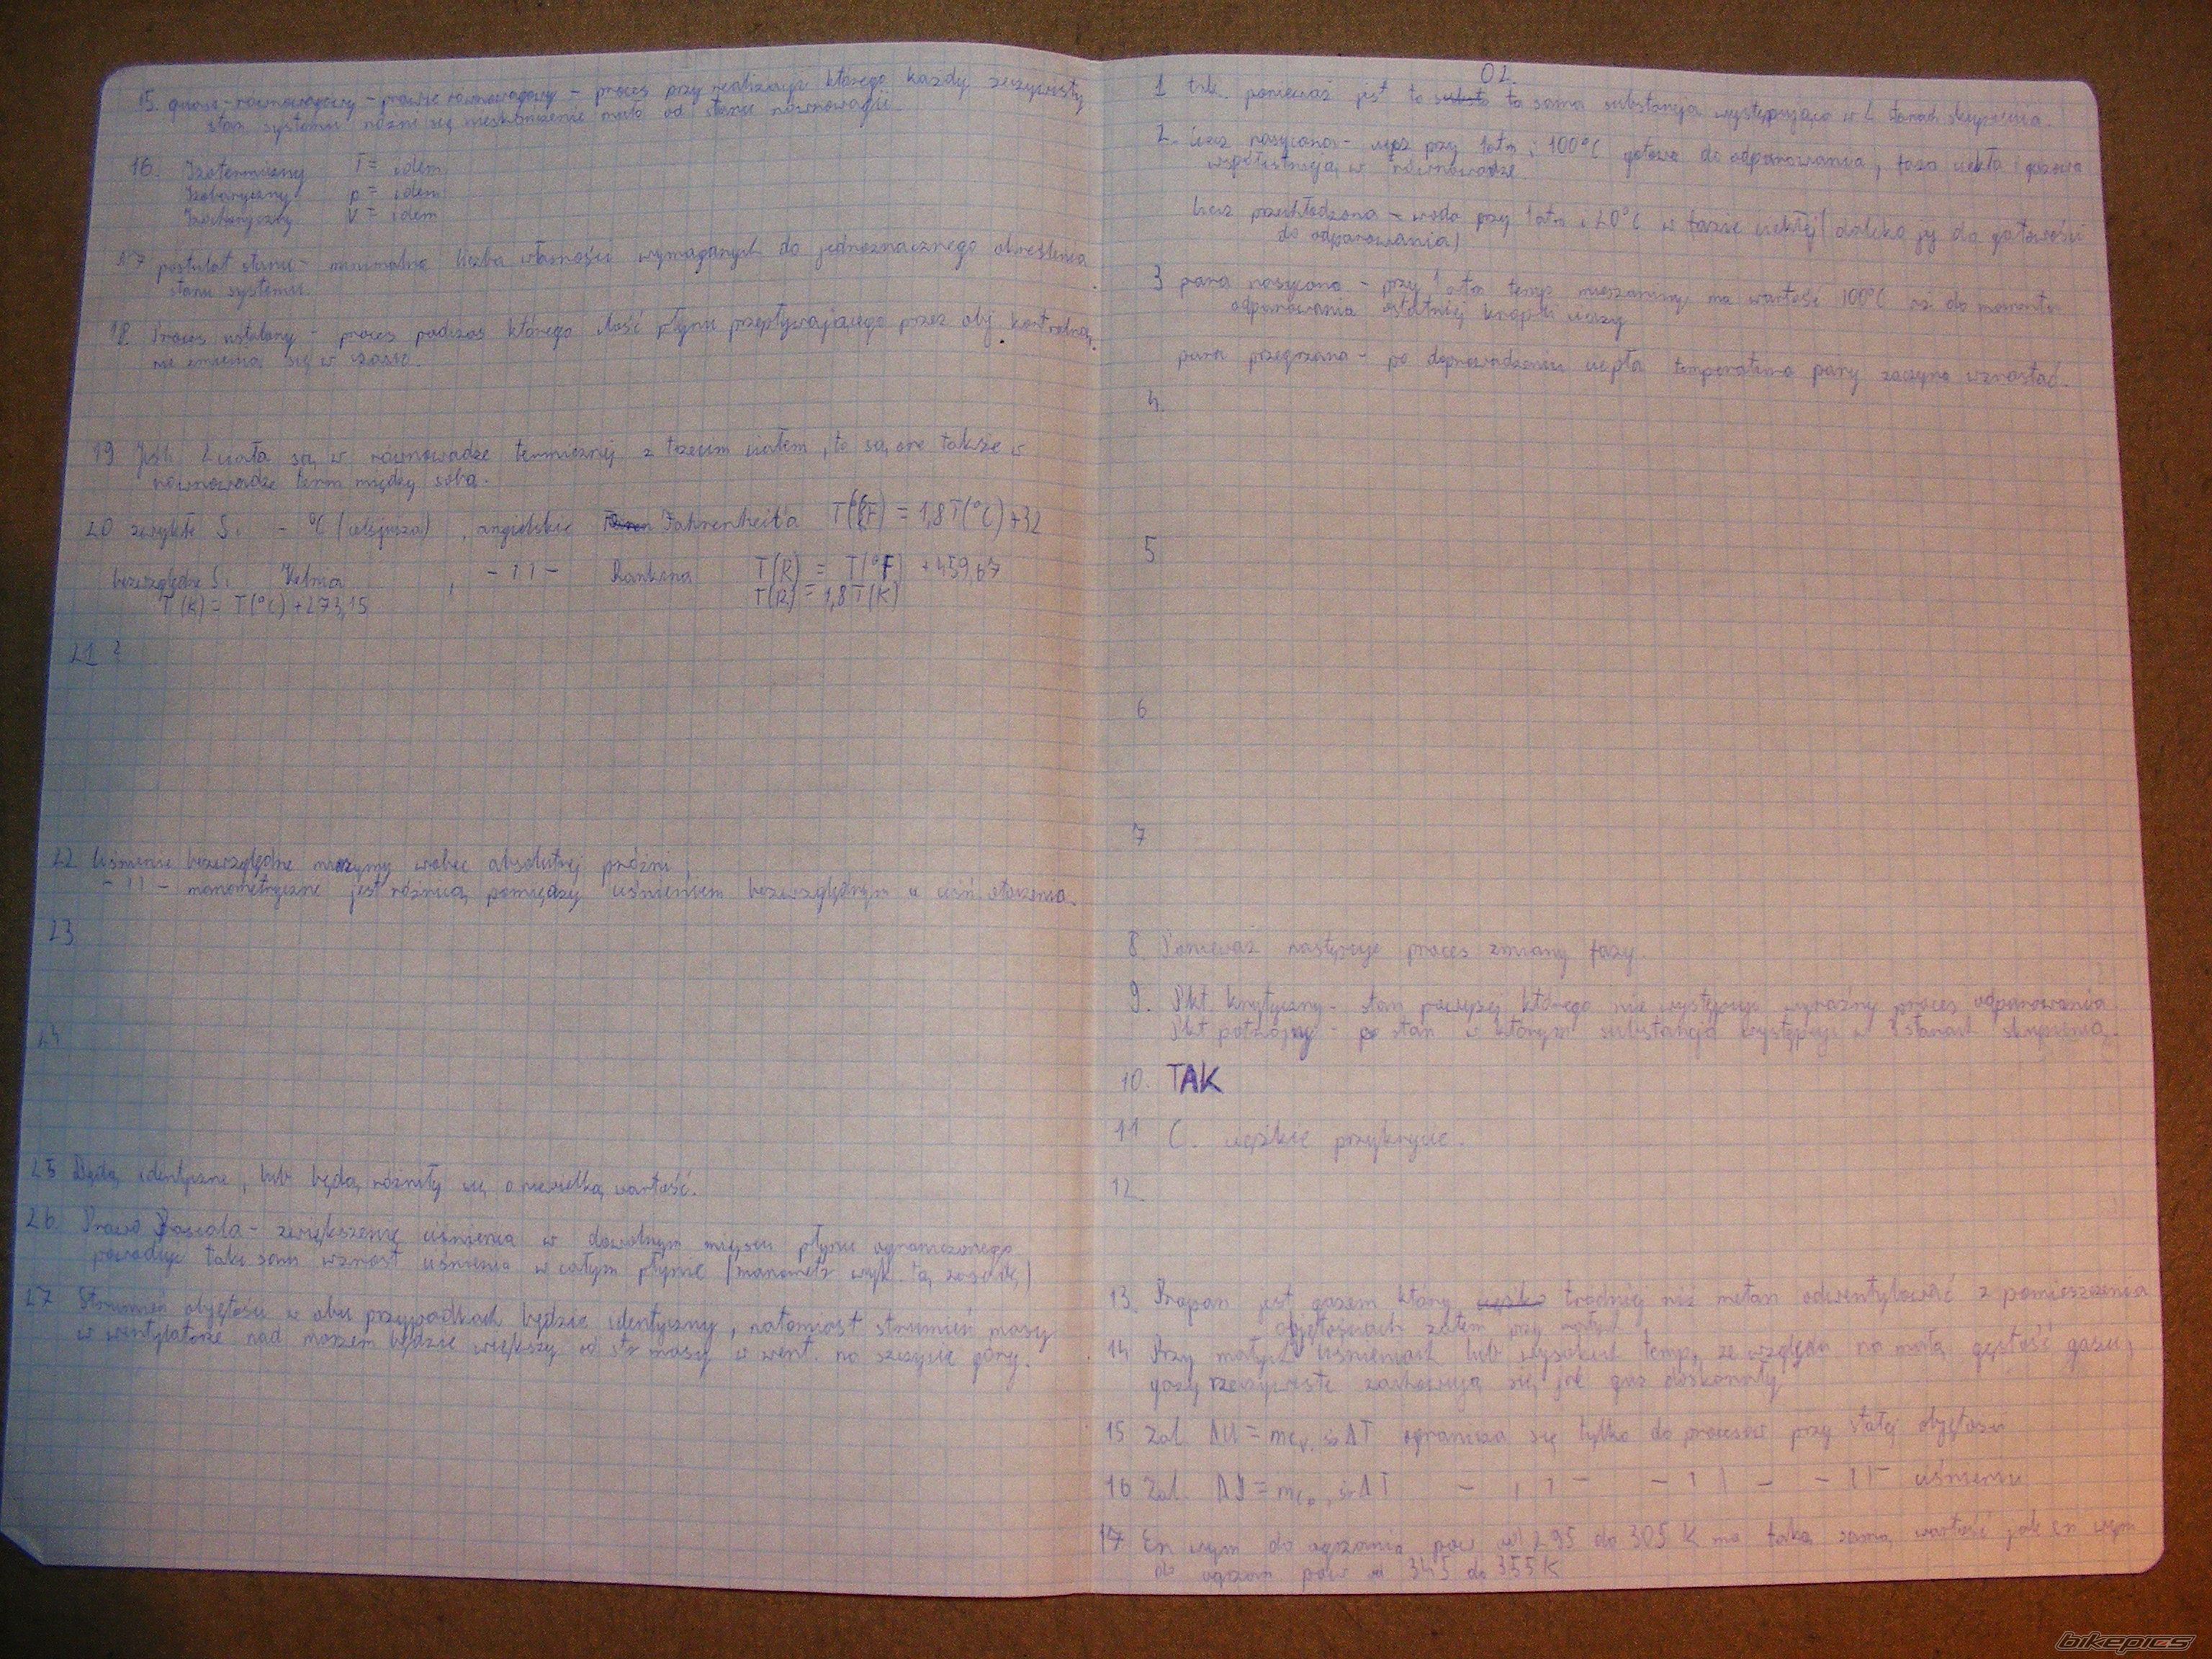 15. quasi-równowagowy - prawie równowagowy - proces przy realizacji którego każdy rzeczywisty
stan systemu różni się nieskończenie mało od stanu równowagi.
16. Izotermiczny T = idem
Izobaryczny p = idem
Izochoryczny V = idem
17 postulat stanu - minimalna liczba własności wymaganych do jednoznacznego określenia
stanu systemu.
18 Proces ustalony - proces podczas którego ilość płynu przepływającego przez obj. kontrolną
nie zmienia się w czasie.
19 Jeśli 2 ciała są w równowadze termicznej z trzecim ciałem, to są one także w
równowadze term między sobą.
20 zwykłe Si - °C (celsjusza), angielskie Fahrenheita T(°F) = 1,8T(°C)+32
bezwzględne Si Kelvina , -11- Rankina T(R) = T(°F) + 459,67
T(K) = T(°C) + 273,15 T(R) = 1,8T(K)
21 ?
22 Ciśnienie bezwzględne mierzymy wobec absolutnej próżni,
-11- manometryczne jest różnicą pomiędzy ciśnieniem bezwzględnym a ciśn. otoczenia.
23
24
25 Będą identyczne, lub będą różniły się o niewielką wartość.
26. Prawo Pascala - zwiększenie ciśnienia w dowolnym miejscu płynu ograniczonego
powoduje taki sam wzrost ciśnienia w całym płynie (manometr wyk. tą zasadę)
27 Strumień objętości w obu przypadkach będzie identyczny, natomiast strumień masy
w wentylatorze nad morzem będzie większy od str masy w went. na szczycie góry.
02.
1 tak. ponieważ jest to ta sama substancja występująca w 2 stanach skupienia.
2. Ciecz nasycona - ciecz przy 1atm i 100°C gotowa do odparowania, faza ciekła i gazowa
współistnieją w równowadze.
Ciecz przechłodzona - woda przy 1 atm i 20°C w fazie ciekłej (daleko jej do gotowości
do odparowania)
3 para nasycona - przy 1 atm temp mieszaniny ma wartość 100°C aż do momentu
odparowania ostatniej kropli cieczy
para przegrzana - po doprowadzeniu ciepła temperatura pary zaczyna wzrastać.
4.
5
6
7
8. Ponieważ następuje proces zmiany fazy.
9. Pkt. krytyczny - stan powyżej którego nie występuje wyraźny proces odparowania
Pkt potrójny - stan w którym substancja występuje w 3 stanach skupienia.
10. TAK
11 C. ciężkie przykrycie.
12.
13. Propan jest gazem który trudniej niż metan odwentylować z pomieszczenia
objętościach zatem przy
14 Przy małych ciśnieniach lub wysokich temp, ze względu na małą gęstość gazu,
gazy rzeczywiste zachowują się jak gaz doskonały
15 Zal. ΔU = mcv, śr ΔT ogranicza się tylko do procesów przy stałej objętości
16 Zal. ΔI = mcp, śr ΔT -11- -11- -11- ciśnieniu
17 En wym do ogrzania pow od 295 do 305 K ma taką samą wartość jak en wym
do ogrzan pow od 345 do 355 K
bikepics